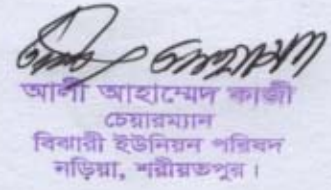 আলী আহাম্মেদ কাজী
চেয়ারম্যান
বিঝারী ইউনিয়ন পরিষদ
নড়িয়া, শরীয়তপুর।